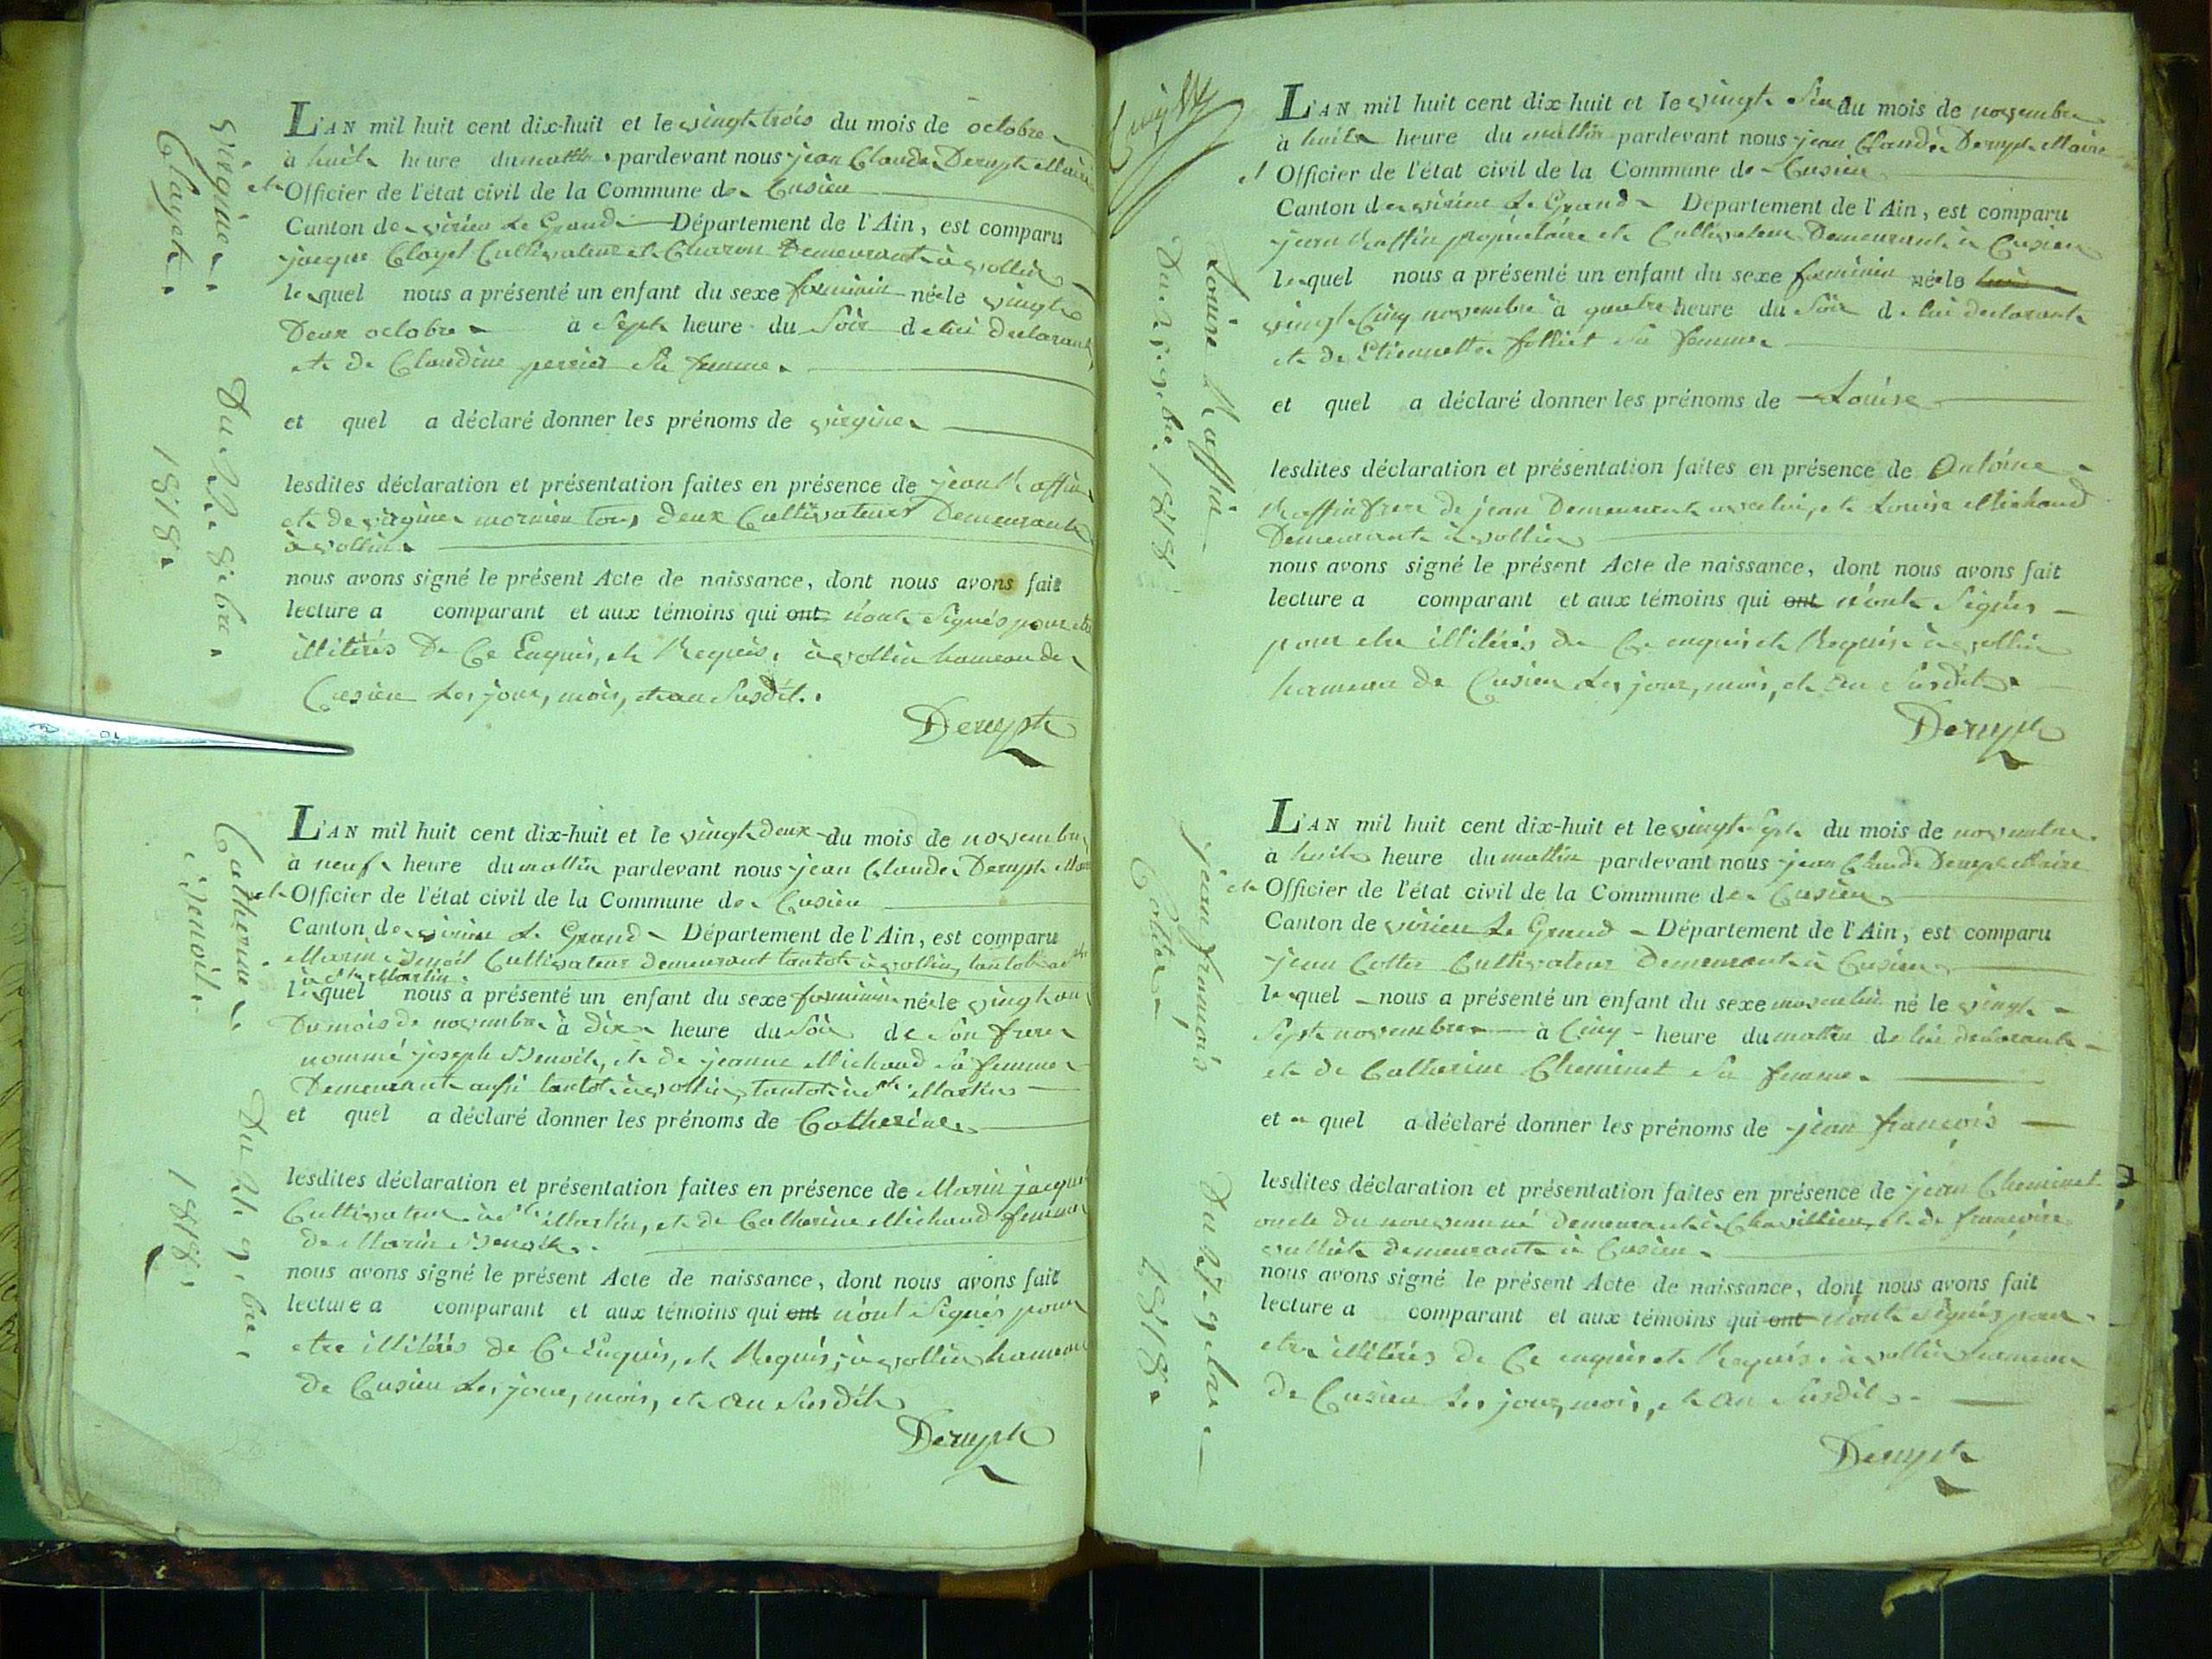 L'AN mil huit cent dix-huit et le vingt trois du mois de octobre
à huit heure du mattin pardevant nous jean Claude Derupt Maire
et Officier de l'état civil de la Commune de Cusieu
Canton de virieu Le Grand Département de l'Ain, est comparu
jacque Clayet Cultivateur et Charron Demeurant à vollin
lequel nous a présenté un enfant du sexe feminin née le vingt
Deux octobre à Sept heure du Soir de lui declarant
et de Claudine perrier Sa femme
et quel a déclaré donner les prénoms de virginie
lesdites déclaration et présentation faites en présence de jean Raffin
et de virginie mornieu tous deux Cultivateurs Demeurant
à vollin
nous avons signé le présent Acte de naissance, dont nous avons fait
lecture a comparant et aux témoins qui ont n'ont Signés pour etre
illitérés De Ce Enquis, et Requis, à vollin hameau de
Cusieu Les jour, mois, et an Susdit.
Derupt
virginie
Clayet
Du 23 8bre
1818
L'AN mil huit cent dix-huit et le vingt deux du mois de novembre
à neuf heure du mattin pardevant nous jean Claude Derupt Maire
et Officier de l'état civil de la Commune de Cusieu
Canton de virieu Le Grand Département de l'Ain, est comparu
Marin Benoit Cultivateur demeurant tantot à vollin, tantot
à St Martin
lequel nous a présenté un enfant du sexe feminin née le vingt un
Du mois de novembre à dix heure du Soir de Son frere
nommé joseph Benoit, et de jeanne Michaud Sa femme
Demeurant aussi tantot à vollin, tantot à St Martin
et quel a déclaré donner les prénoms de Catherine
lesdites déclaration et présentation faites en présence de Marin jacque
Cultivateur à St Martin, et de Catherine Michaud femme
de Marin Benoit
nous avons signé le présent Acte de naissance, dont nous avons fait
lecture a comparant et aux témoins qui ont n'ont Signés pour
etre illitérés de Ce Enquis, et Requis, à vollin hameau
de Cusieu Les jour, mois, et an Susdit
Derupt
Catherine
Benoit
Du 22 9bre
1818
L'AN mil huit cent dix-huit et le vingt Six du mois de novembre
à huit heure du mattin pardevant nous jean Claude Derupt Maire
et Officier de l'état civil de la Commune de Cusieu
Canton de virieu Le Grand Département de l'Ain, est comparu
jean Raffin propriétaire et Cultivateur Demeurant à Cusieu
lequel nous a présenté un enfant du sexe feminin née le
vingt Cinq novembre à quatre heure du Soir de lui declarant
et de Etiennette folliet Sa femme
et quel a déclaré donner les prénoms de Louise
lesdites déclaration et présentation faites en présence de Antoine
Raffin frere de jean Demeurant avec lui, et Louise Michaud
Demeurant à vollin
nous avons signé le présent Acte de naissance, dont nous avons fait
lecture a comparant et aux témoins qui ont n'ont Signés
pour etre illitérés de Ce enquis et Requis à vollin
hameau de Cusieu Les jour, mois, et an Susdit
Derupt
Louise Raffin
Du 26 9bre 1818
L'AN mil huit cent dix-huit et le vingt Sept du mois de novembre
à huit heure du mattin pardevant nous jean Claude Derupt Maire
et Officier de l'état civil de la Commune de Cusieu
Canton de virieu Le Grand Département de l'Ain, est comparu
jean Cottier Cultivateur Demeurant à Cusieu
lequel nous a présenté un enfant du sexe masculin né le vingt
Sept novembre à Cinq heure du mattin de lui declarant
et de Catherine Cheminet Sa femme
et quel a déclaré donner les prénoms de jean francois
lesdites déclaration et présentation faites en présence de jean Cheminet
oncle du nouveau né demeurant à Chavillieu, et de francoise
demeurant à Cusieu
nous avons signé le présent Acte de naissance, dont nous avons fait
lecture a comparant et aux témoins qui ont n'ont Signés pour
etre illitérés de Ce enquis et Requis à vollin hameau
de Cusieu Les jour, mois, et an Susdit
Derupt
jean francois
Cottier
Du 27 9bre
1818